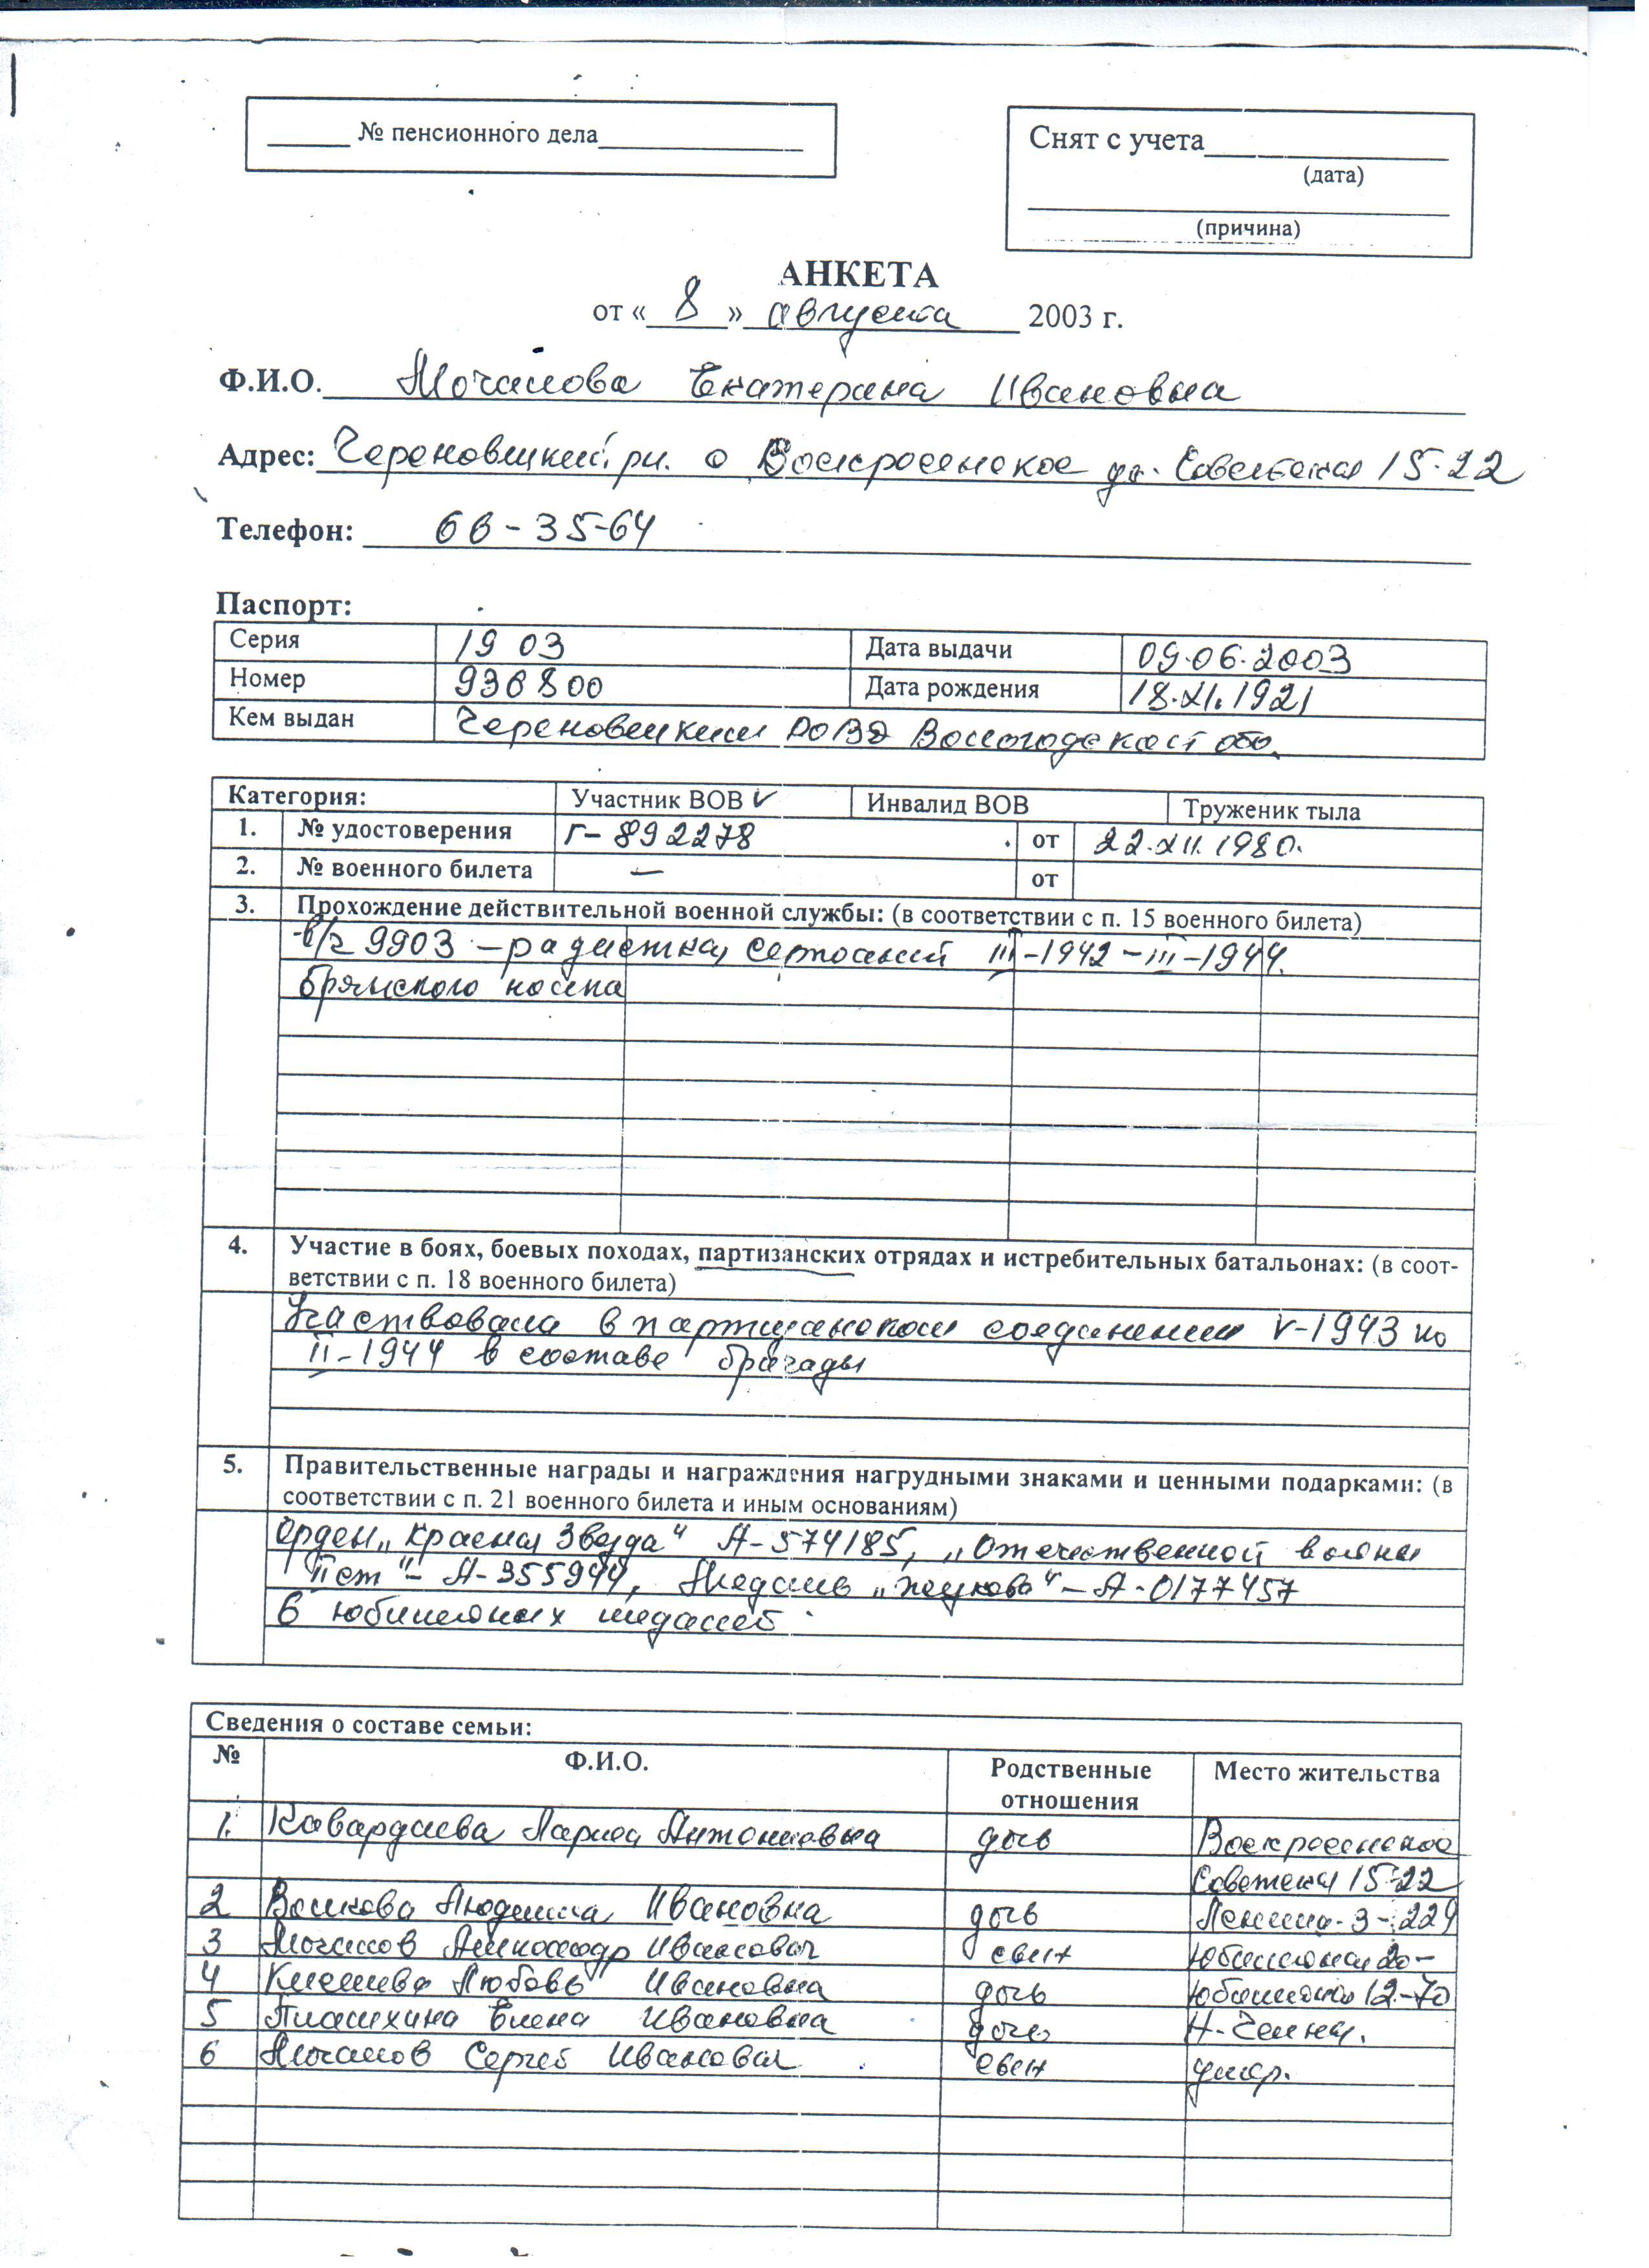 № пенсионного дела
Снят с учета
(дата)
(причина)
АНКЕТА
от « 8 » августа 2003 г.
Ф.И.О. Мочалова Екатерина Ивановна
Адрес: Череповецкий рн. с Воскресенское ул. Советская 15-22
Телефон: 66-35-64
Паспорт:
Серия 19 03 Дата выдачи 09.06.2003
Номер 936800 Дата рождения 18.XI.1921
Кем выдан Череповецким РОВД Вологодской обл.
Категория: Участник ВОВ V Инвалид ВОВ Труженик тыла
1. № удостоверения Г-892278 от 22.XII.1980.
2. № военного билета — от
3. Прохождение действительной военной службы: (в соответствии с п. 15 военного билета)
в/ч 9903 – радистка III-1942 – III-1944.
Брянского
4. Участие в боях, боевых походах, партизанских отрядах и истребительных батальонах: (в соот-
ветствии с п. 18 военного билета)
Участвовала в партизанском соединении V-1943 по
II-1944 в составе бригады
5. Правительственные награды и награждения нагрудными знаками и ценными подарками: (в
соответствии с п. 21 военного билета и иным основаниям)
Орден „Красная Звезда" А-574185, „Отечественной войны
II ст" – А-355944, Медаль „Жукова" – А-0177457
6 юбилейных медалей
Сведения о составе семьи:
№ Ф.И.О. Родственные отношения Место жительства
1. Лариса Антоновна дочь Воскресенское
Советская 15-22
2 Волкова Людмила Ивановна дочь Ленина-3-229
3 Мочалов Александр Иванович сын Юбилейная 20-
4 Любовь Ивановна дочь Юбилейная 12-70
5 Елена Ивановна дочь Н-Челны.
6 Мочалов Сергей Иванович сын умер.